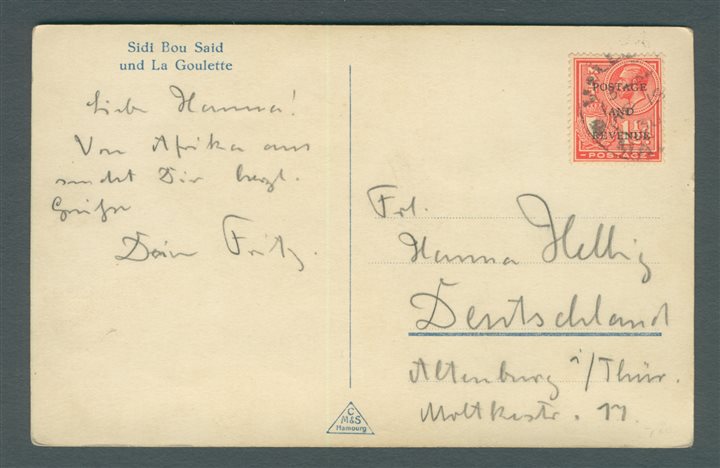 Sidi Bou Said
und La Goulette
Liebe Hanna!
Von Afrika aus
sendet Dir herzl.
Grüße
Dein Fritz.
POSTAGE
AND
REVENUE
POSTAGE
Frl.
Hanna Hellbig
Deutschland
Altenburg i/Thür.
Moltkestr. 11.
C
M&S
Hamburg